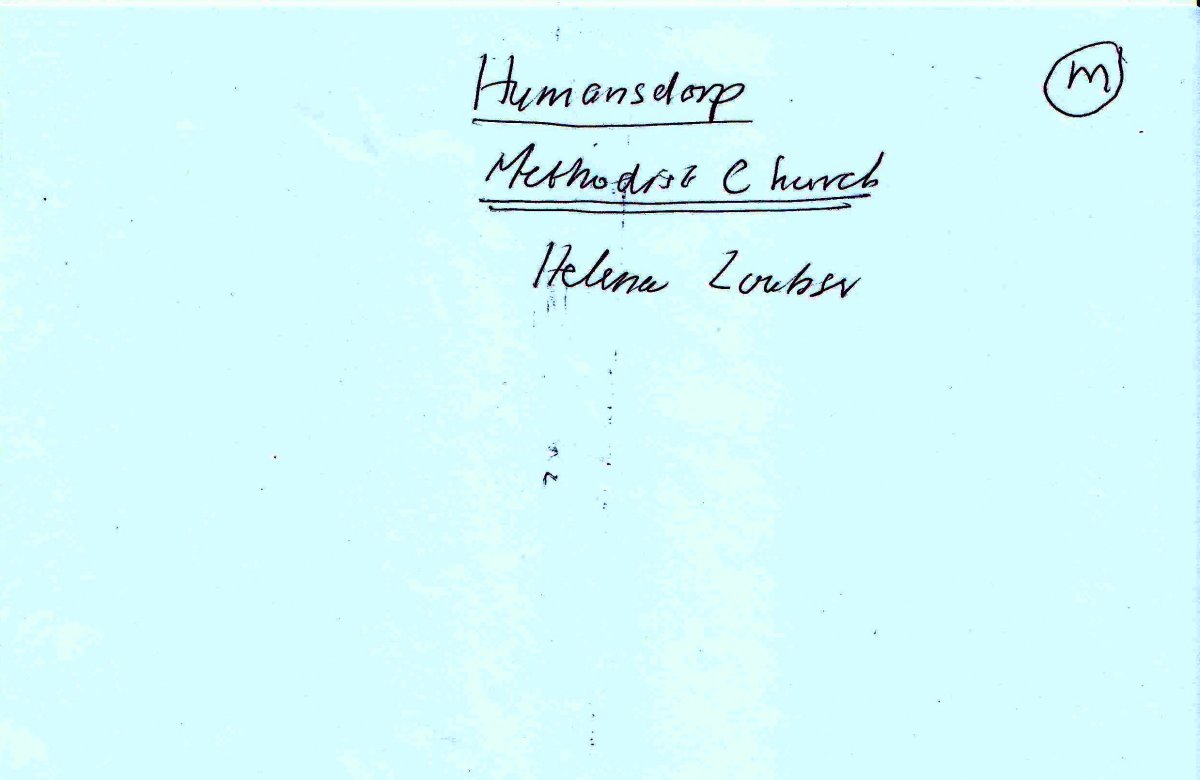 Humansdorp
M
Methodist Church
Helena Loubser